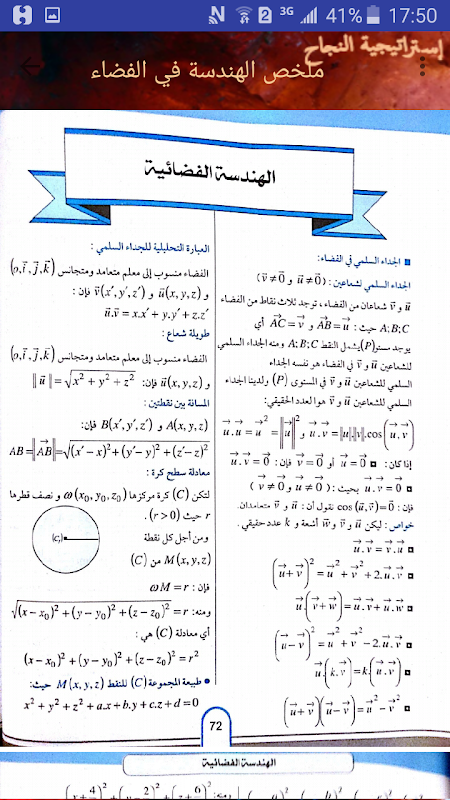 3G 41% 17:50
إستراتيجية النجاح
ملخص الهندسة في الفضاء
الهندسة الفضائية
■ الجداء السلمي في الفضاء:
الجداء السلمي لشعاعين : (u⃗≠0⃗ و v⃗≠0⃗)
u⃗ و v⃗ شعاعان من الفضاء ، توجد ثلاث نقاط من الفضاء
A;B;C حيث : AB⃗=u⃗ و AC⃗=v⃗ أي
يوجد مستو(P)يشمل النقط A;B;C ومنه الجداء السلمي
للشعاعين u⃗ و v⃗ في الفضاء هو نفسه الجداء
السلمي للشعاعين u⃗ و v⃗ في المستوى (P) ولدينا الجداء
السلمي للشعاعين u⃗ و v⃗ هوا لعدد الحقيقي:
u⃗.v⃗=|u⃗|.|v⃗|.cos(u⃗.v⃗) و u⃗.u⃗=u⃗²=‖u⃗‖²
إذا كان : ◘ u⃗=0⃗ أو v⃗=0⃗ فإن : u⃗.v⃗=0
◘ u⃗.v⃗=0 بحيث :(u⃗≠0⃗ و v⃗≠0⃗)
فإن : cos(u⃗,v⃗)=0 نقول أن : u⃗ و v⃗ متعامدان.
خواص : ليكن u⃗ و v⃗ و w⃗ أشعة و k عدد حقيقي.
◘ u⃗.v⃗=v⃗.u⃗
◘ (u⃗+v⃗)²=u⃗²+v⃗²+2.u⃗.v⃗
◘ u⃗.(v⃗+w⃗)=u⃗.v⃗+u⃗.w⃗
◘ (u⃗−v⃗)²=u⃗²+v⃗²−2.u⃗.v⃗
◘ u⃗.(k.v⃗)=k.(u⃗.v⃗)
◘ (u⃗+v⃗)(u⃗−v⃗)=u⃗²−v⃗²
العبارة التحليلية للجداء السلمي :
الفضاء منسوب إلى معلم متعامد ومتجانس (o,i⃗,j⃗,k⃗)
و u⃗(x,y,z) و v⃗(x′,y′,z′) فإن :
u⃗.v⃗=x.x′+y.y′+z.z′
طويلة شعاع :
الفضاء منسوب إلى معلم متعامد ومتجانس (o,i⃗,j⃗,k⃗)
و u⃗(x,y,z) فإن: ‖u⃗‖=√(x²+y²+z²)
المسافة بين نقطتين :
A(x,y,z) و B(x′,y′,z′) فإن:
AB=‖AB⃗‖=√((x′−x)²+(y′−y)²+(z′−z)²)
معادلة سطح كرة :
لتكن (C) كرة مركزها ω(x₀,y₀,z₀) و نصف قطرها
r حيث (r>0) .
ومن أجل كل نقطة
M(x,y,z) من (C)
فإن : ωM=r
ومنه: √((x−x₀)²+(y−y₀)²+(z−z₀)²)=r
أي معادلة (C) هي :
(x−x₀)²+(y−y₀)²+(z−z₀)²=r²
• طبيعة المجموعة (C) للنقط M(x,y,z) حيث:
x²+y²+z²+a.x+b.y+c.z+d=0
72
الهندسة الفضائية